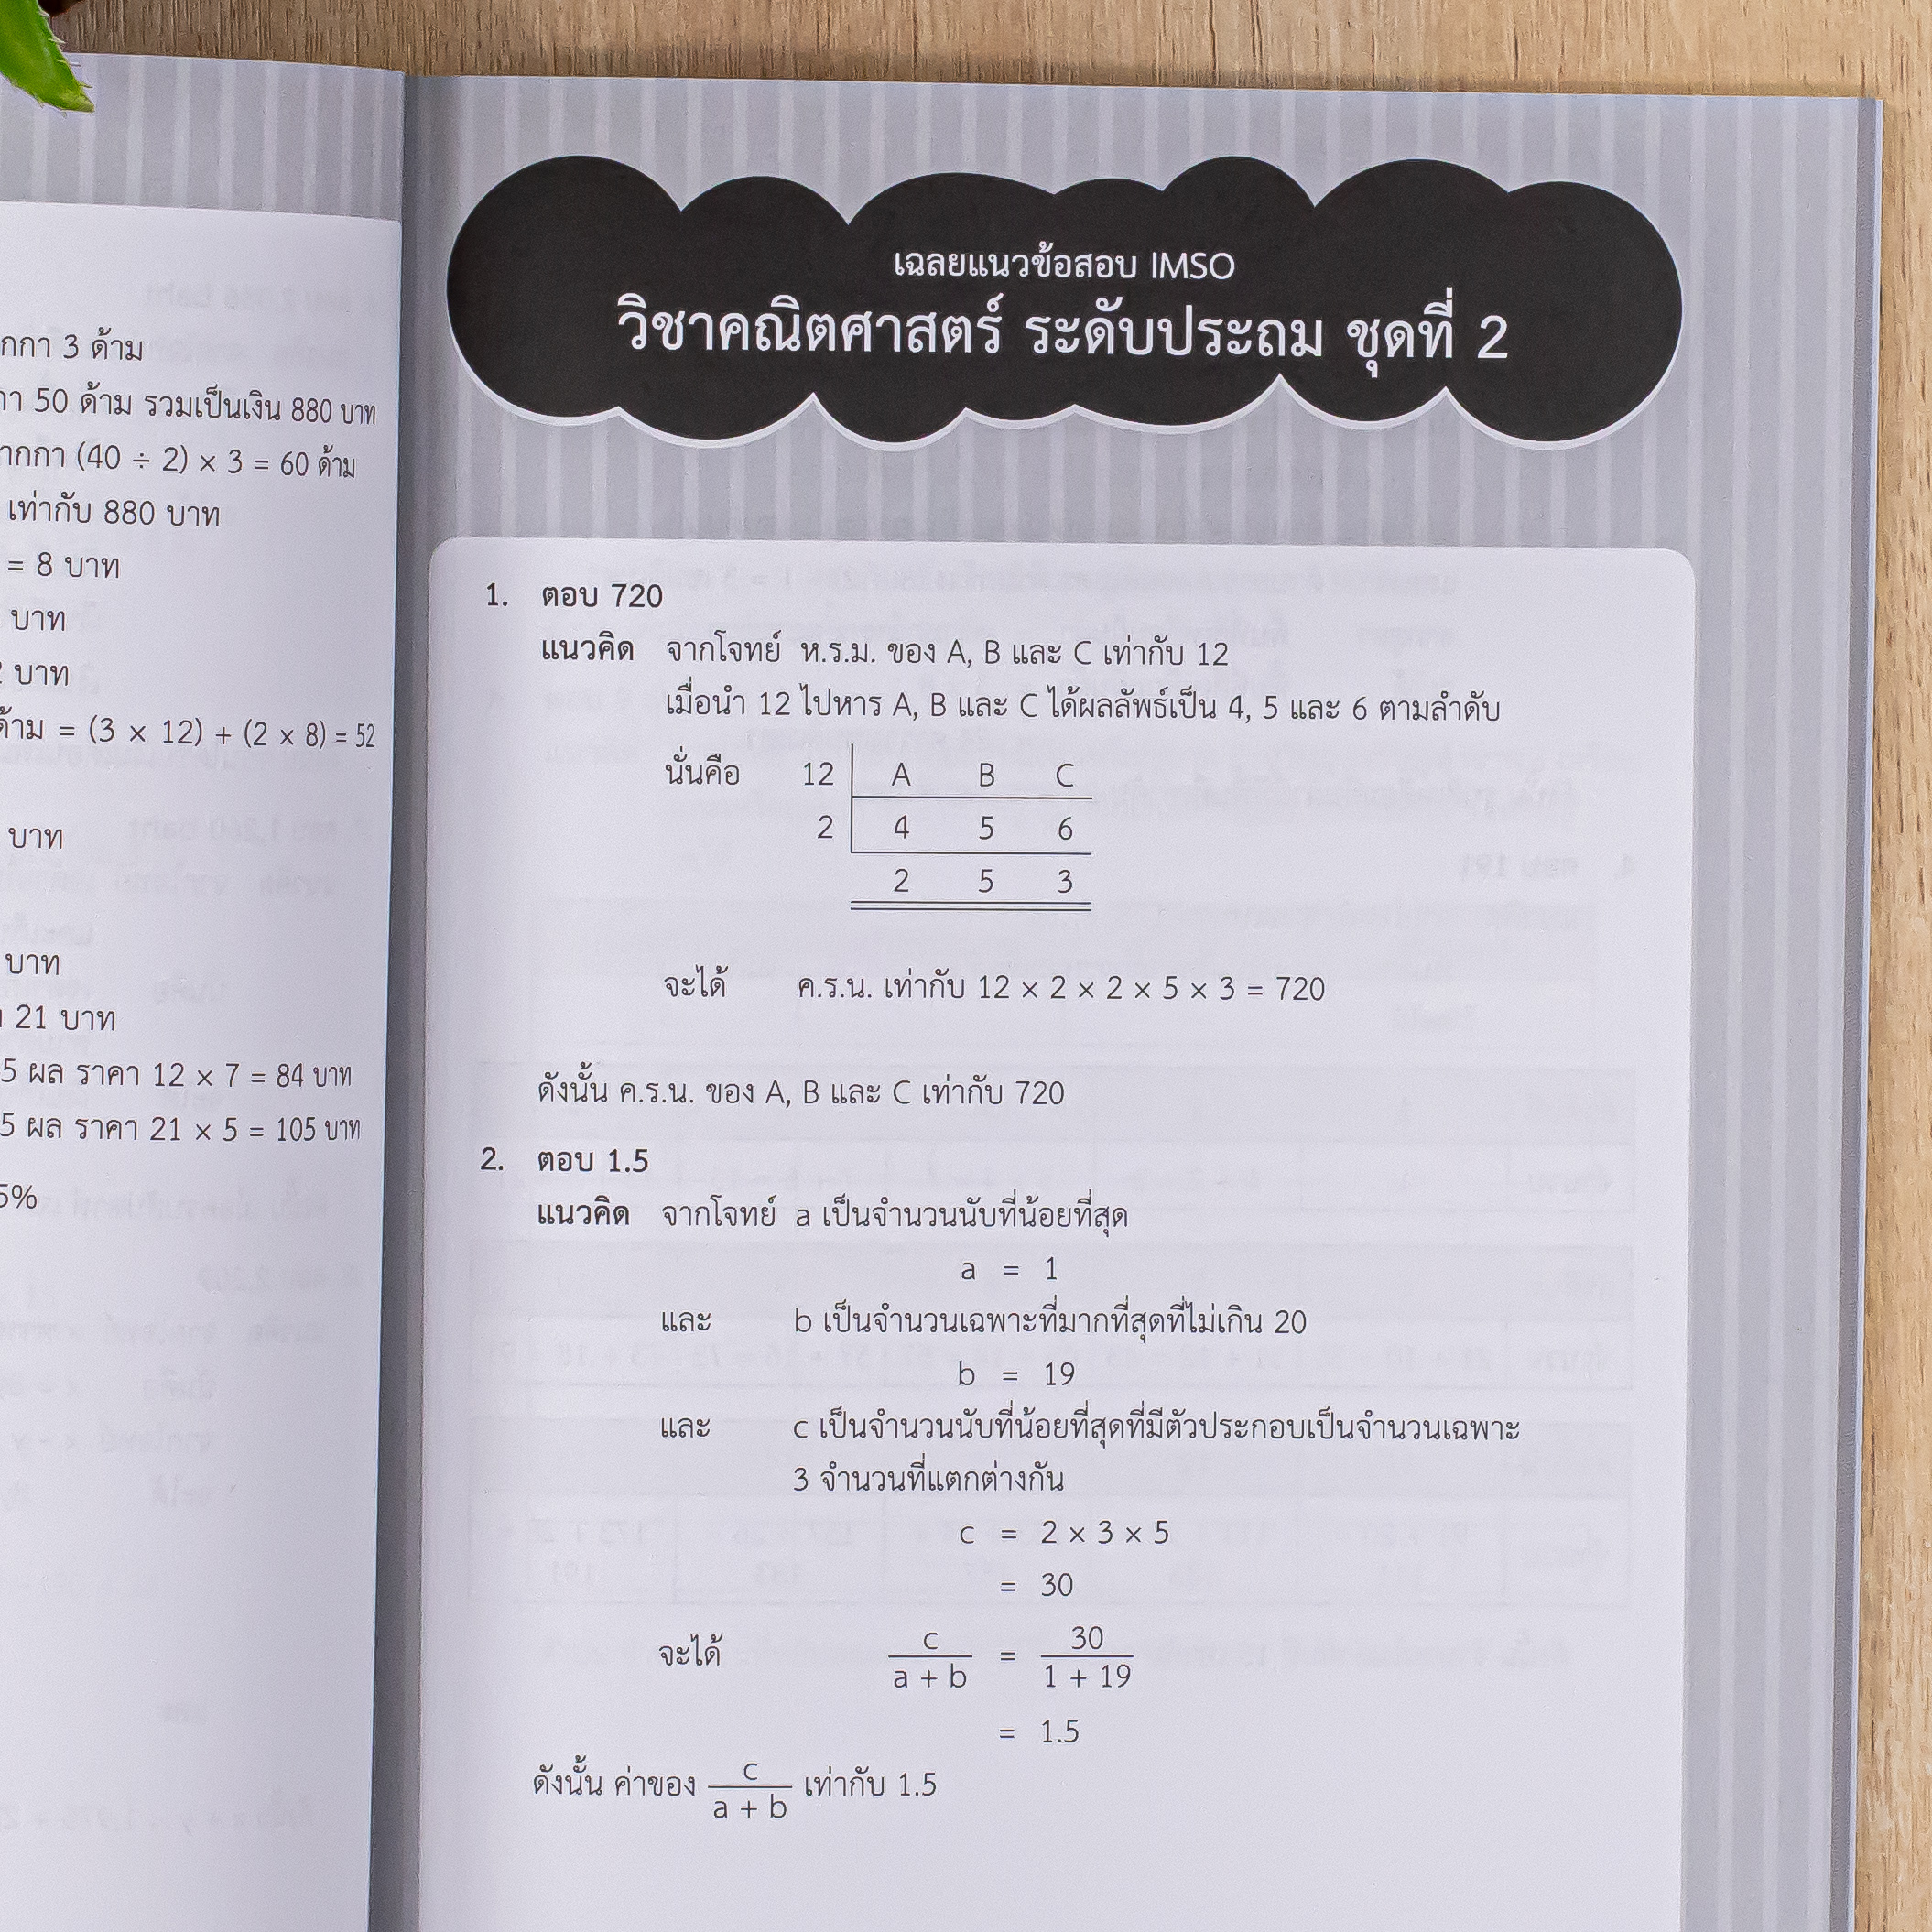 กกา 3 ด้าม
กา 50 ด้าม รวมเป็นเงิน 880 บาท
ากกา (40 ÷ 2) × 3 = 60 ด้าม
เท่ากับ 880 บาท
= 8 บาท
บาท
2 บาท
ด้าม = (3 × 12) + (2 × 8) = 52
บาท
บาท
21 บาท
5 ผล ราคา 12 × 7 = 84 บาท
5 ผล ราคา 21 × 5 = 105 บาท
5%
เฉลยแนวข้อสอบ IMSO
วิชาคณิตศาสตร์ ระดับประถม ชุดที่ 2
1. ตอบ 720
แนวคิด จากโจทย์ ห.ร.ม. ของ A, B และ C เท่ากับ 12
เมื่อนำ 12 ไปหาร A, B และ C ได้ผลลัพธ์เป็น 4, 5 และ 6 ตามลำดับ
นั่นคือ 12 A B C
2 4 5 6
2 5 3
จะได้ ค.ร.น. เท่ากับ 12 × 2 × 2 × 5 × 3 = 720
ดังนั้น ค.ร.น. ของ A, B และ C เท่ากับ 720
2. ตอบ 1.5
แนวคิด จากโจทย์ a เป็นจำนวนนับที่น้อยที่สุด
a = 1
และ b เป็นจำนวนเฉพาะที่มากที่สุดที่ไม่เกิน 20
b = 19
และ c เป็นจำนวนนับที่น้อยที่สุดที่มีตัวประกอบเป็นจำนวนเฉพาะ
3 จำนวนที่แตกต่างกัน
c = 2 × 3 × 5
= 30
จะได้ c / (a + b) = 30 / (1 + 19)
= 1.5
ดังนั้น ค่าของ c / (a + b) เท่ากับ 1.5